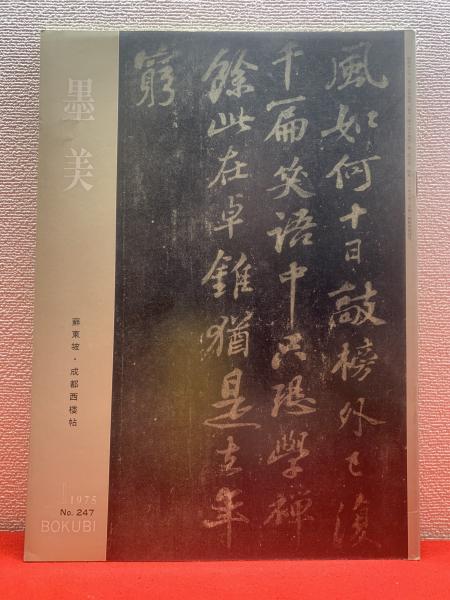 墨美
蘇東坡・成都西楼帖
1975
No. 247
BOKUBI
風如何十日敲榜外已復
千篇笑語中只恐學禪
餘此在卓錐猶是去年
窮